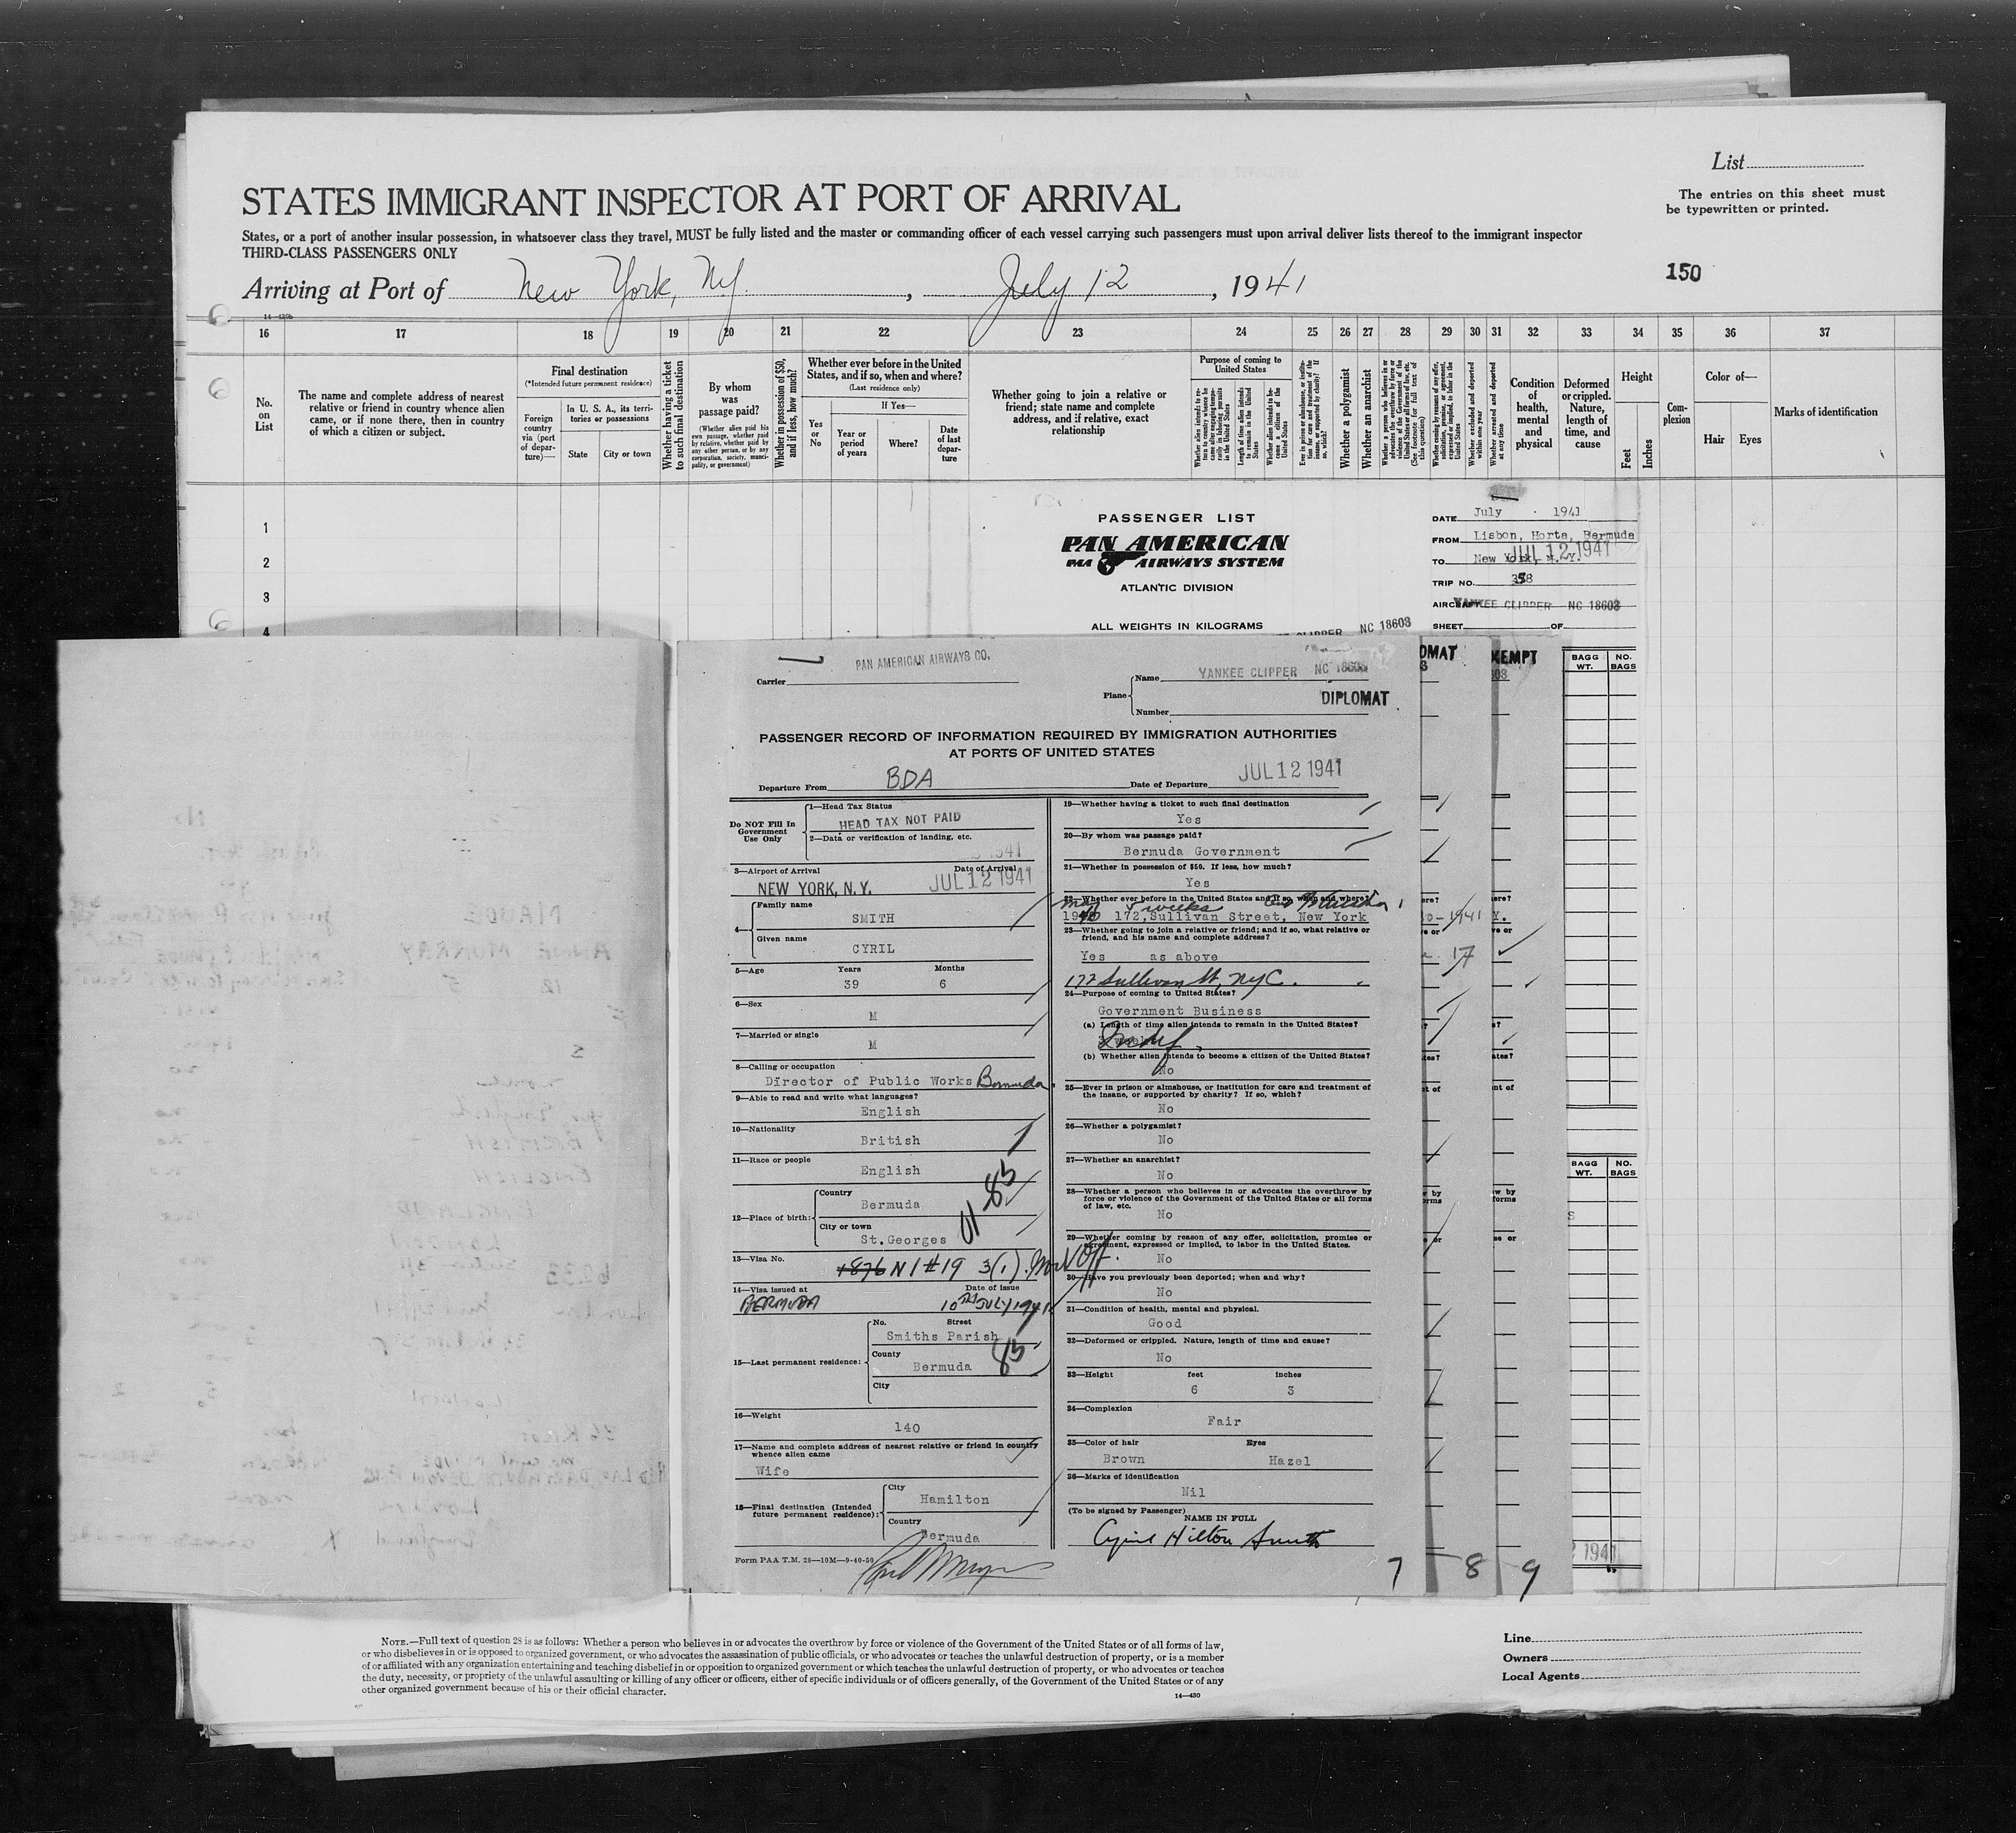 List
The entries on this sheet must
be typewritten or printed.
STATES IMMIGRANT INSPECTOR AT PORT OF ARRIVAL
States, or a port of another insular possession, in whatsoever class they travel, MUST be fully listed and the master or commanding officer of each vessel carrying such passengers must upon arrival deliver lists thereof to the immigrant inspector
THIRD-CLASS PASSENGERS ONLY
150
Arriving at Port of New York, NY. , July 12 , 1941
16 17 18 19 20 21 22 23 24 25 26 27 28 29 30 31 32 33 34 35 36 37
No. on List
The name and complete address of nearest
relative or friend in country whence alien
came, or if none there, then in country
of which a citizen or subject.
Final destination
(*Intended future permanent residence)
Foreign country via (port of departure)—
In U. S. A., its territories or possessions
State City or town
Whether having a ticket to such final destination
By whom was passage paid?
(Whether alien paid his own passage, whether paid by relative, whether paid by any other person, or by any corporation, society, municipality, or government)
Whether in possession of $50, and if less, how much?
Whether ever before in the United
States, and if so, when and where?
(Last residence only)
Yes or No
If Yes—
Year or period of years
Where?
Date of last departure
Whether going to join a relative or
friend; state name and complete
address, and if relative, exact
relationship
Purpose of coming to United States
Whether a polygamist
Whether an anarchist
Condition of health, mental and physical
Deformed or crippled. Nature, length of time, and cause
Height
Feet Inches
Complexion
Color of—
Hair Eyes
Marks of identification
1
2
3
4
PASSENGER LIST
PAN AMERICAN
PAA AIRWAYS SYSTEM
ATLANTIC DIVISION
ALL WEIGHTS IN KILOGRAMS
DATE July 1941
FROM Lisbon, Horta, Bermuda
TO New York, N.Y. JUL 12 1941
TRIP NO.
AIRCRAFT YANKEE CLIPPER NC 18603
SHEET OF
CLIPPER NC 18603
BAGG WT. NO. BAGS
BAGG WT. NO. BAGS
OMAT
XEMPT
Carrier PAN AMERICAN AIRWAYS CO.
Plane
Name YANKEE CLIPPER NC 18603
DIPLOMAT
Number
PASSENGER RECORD OF INFORMATION REQUIRED BY IMMIGRATION AUTHORITIES
AT PORTS OF UNITED STATES
Departure From BDA Date of Departure JUL 12 1941
Do NOT Fill In Government Use Only
1—Head Tax Status
HEAD TAX NOT PAID
2—Data or verification of landing, etc.
3—Airport of Arrival Date of Arrival
NEW YORK, N.Y. JUL 12 1941
4—
Family name
SMITH
Given name
CYRIL
5—Age Years Months
39 6
6—Sex
M
7—Married or single
M
8—Calling or occupation
Director of Public Works Bermuda
9—Able to read and write what languages?
English
10—Nationality
British
11—Race or people
English
12—Place of birth:
Country
Bermuda
City or town
St.Georges
01 85
13—Visa No.
1876 N1 #19 3(1).
14—Visa issued at Date of issue
BERMUDA 10TH JULY 1941
15—Last permanent residence:
No. Street
Smiths Parish
County
Bermuda 85
City
16—Weight
140
17—Name and complete address of nearest relative or friend in country
whence alien came
Wife
18—Final destination (Intended
future permanent residence):
City
Hamilton
Country
Bermuda
Form PAA T.M. 28—10M—9-40-50
19—Whether having a ticket to such final destination
Yes
20—By whom was passage paid?
Bermuda Government
21—Whether in possession of $50. If less, how much?
Yes
22—Whether ever before in the United States and if so, when and where?
weeks
172,Sullivan Street, New York
23—Whether going to join a relative or friend; and if so, what relative or
friend, and his name and complete address?
Yes as above
172 Sullivan St, NYC.
24—Purpose of coming to United States?
Government Business
(a) Length of time alien intends to remain in the United States?
Indef.
(b) Whether alien intends to become a citizen of the United States?
No
25—Ever in prison or almshouse, or institution for care and treatment of
the insane, or supported by charity? If so, which?
No
26—Whether a polygamist?
No
27—Whether an anarchist?
No
28—Whether a person who believes in or advocates the overthrow by
force or violence of the Government of the United States or all forms
of law, etc.
No
29—Whether coming by reason of any offer, solicitation, promise or
agreement, expressed or implied, to labor in the United States.
No
30—Have you previously been deported; when and why?
No
31—Condition of health, mental and physical.
Good
32—Deformed or crippled. Nature, length of time and cause?
No
33—Height feet inches
6 3
34—Complexion
Fair
35—Color of hair Eyes
Brown Hazel
36—Marks of identification
Nil
(To be signed by Passenger)
NAME IN FULL
Cyril Hilton Smith
7 8 9
NOTE.—Full text of question 28 is as follows: Whether a person who believes in or advocates the overthrow by force or violence of the Government of the United States or of all forms of law,
or who disbelieves in or is opposed to organized government, or who advocates the assassination of public officials, or who advocates or teaches the unlawful destruction of property, or is a member
of or affiliated with any organization entertaining and teaching disbelief in or opposition to organized government or which teaches the unlawful destruction of property, or who advocates or teaches
the duty, necessity, or propriety of the unlawful assaulting or killing of any officer or officers, either of specific individuals or of officers generally, of the Government of the United States or of any
other organized government because of his or their official character.
14—430
Line
Owners
Local Agents